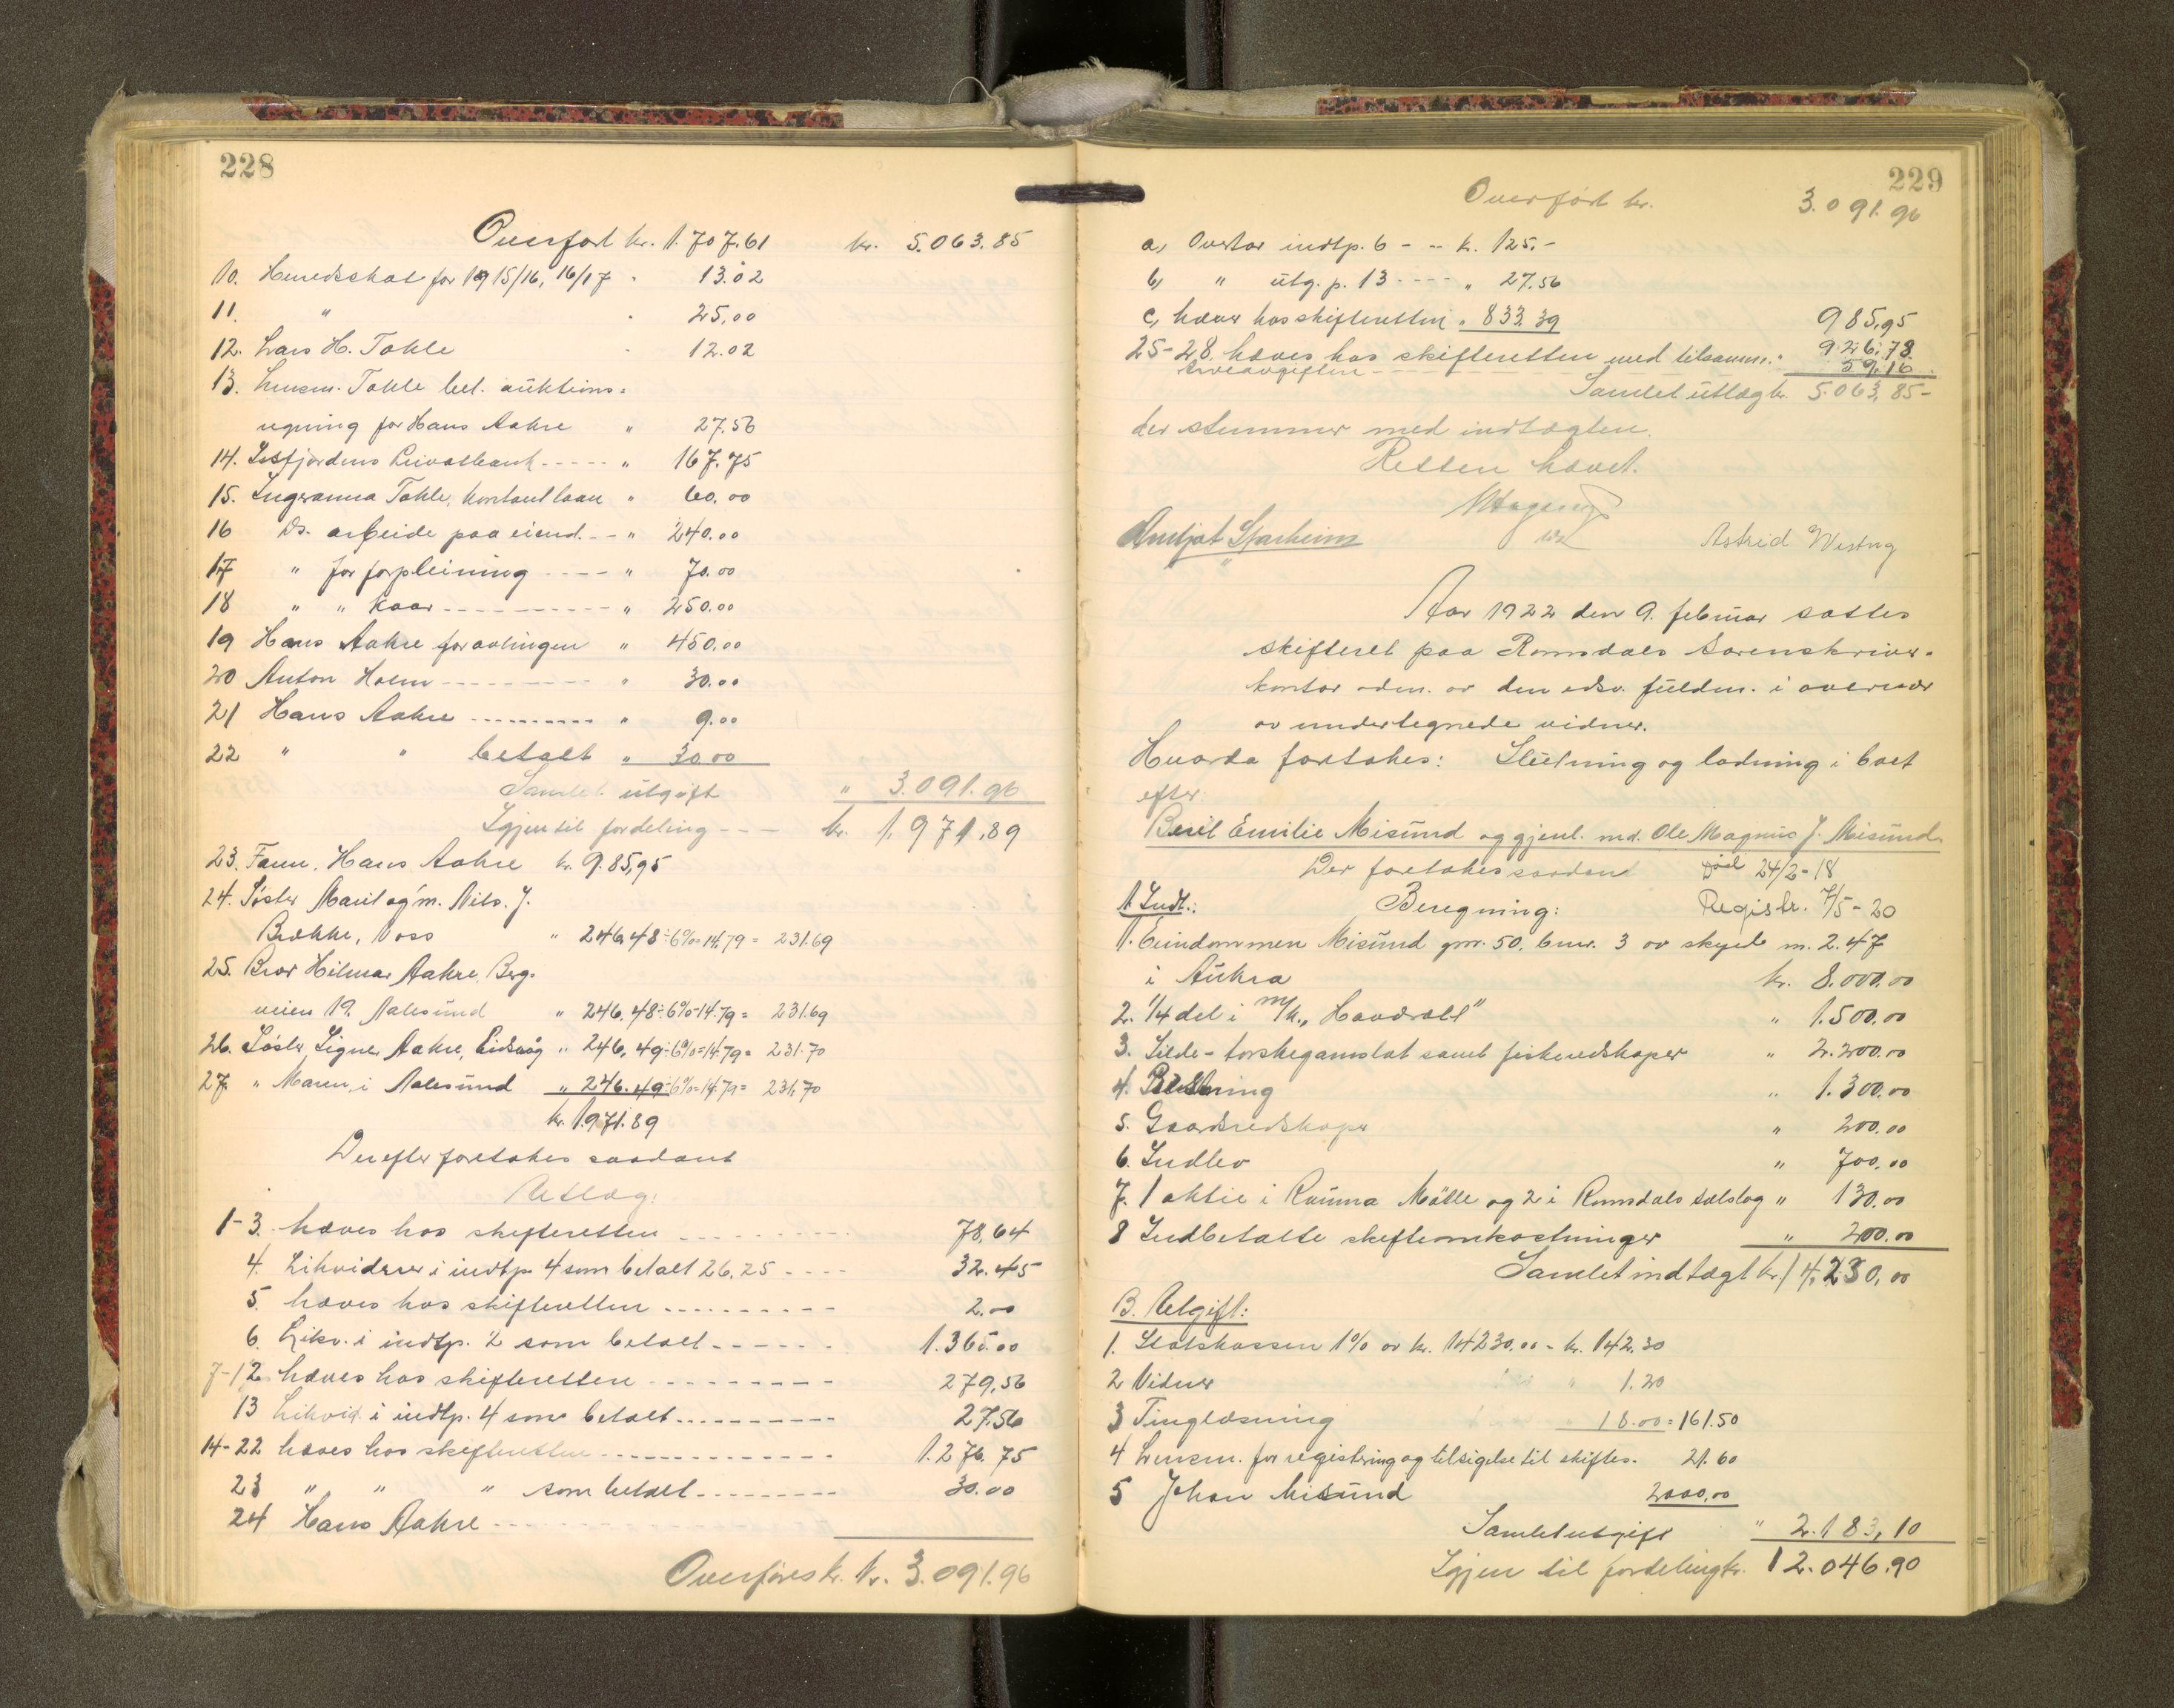 228
Overført kr. 1.707.61 kr. 5.063.85
10. Herredsskat for 1915/16, 16/17 - 13.02
11. " - 25.00
12. Lars H. Tokle - 12.02
13. Lensm. Tokle bet. auktions=
regning for Hans Aakre " 27.56
14. Isfjordens Privatbank ----- " 167.75
15. Ingeranna Tokle, kontant laan " 60.00
16 Ds. arbeide paa eiend. -- " 240.00
17 " for forpleining ---- " 70.00
18 " " kaar ---------- " 250.00
19 Hans Aakre for avlingen " 450.00
20 Anton Holm --------- " 30.00
21 Hans Aakre --------- " 9.00
22 " " betalt " 30.00
Samlet utgift " 3.091.96
Igjen til fordeling --- kr. 1.971,89
23. Fann. Hans Aakre kr. 985,95
24. Søster Marit og m. Nils. J.
Brække, Voss " 246,48÷6%=14.79= 231.69
25. Bror Hilmar Aakre, Berg-
veien 19. Aalesund " 246.48÷6%=14.79= 231.69
26. Søster, Signe Aakre, Eidsvåg " 246,49÷6%=14.79= 231.70
27. " Maren i Aalesund " 246.49÷6%=14.79= 231,70
kr. 1.971.89
Derefter foretokes saadant
Utlæg:
1-3. hæves hos skifteretten --------- 78,64
4. Likviderer i indtp. 4 som betalt 26,25 ---- 32.45
5. hæves hos skifteretten ---------- 2.00
6. Likv. i indtp. 2 som betalt ------ 1.365.00
7-12 hæves hos skifteretten --------- 279,56
13 Likvid. i indtp. 4 som betalt ---------- 27.56
14-22 hæves hos skifteretten ------------- 1.276.75
23 " " " som betalt --------- 30.00
24 Hans Aakre ------------
Overføres kr. kr. 3.091.96
229
Overført kr. 3.091.96
a, Overtar indtp. 6 - -- k. 125.-
b, " utg. p. 13 ---- " 27.56
c, hæver hos skifteretten " 833.39 985,95
25-28. hæves hos skifteretten med tilsamm. " 926,78
Arveavgiften ------ 59.16
Samlet utlæg kr. 5.063,85-
der stemmer med indtægten.
Retten hævet.
Astrid
Aar 1922 den 9. februar sattes
skifteret paa Romsdals sorenskriver-
kontor adm. av den edsv. fuldm. i overvær
av undertegnede vidner.
Hvorda foretokes: Slutning og lodning i boet
efter
Beril Emilie Misund og gjenl. md. Ole Magnus J. Misund.
Der foretokes saadan død 24/2-18
A. Indt.: Beregning: Registr. 7/5-20
1. Eiendommen Misund gnr. 50. bnr. 3 av skyld m. 2.47
i Aukra kr. 8.000.00
2. 1/4 del i m/k. "Haavrald" " 1.500.00
3. Silde- torskegarnslat samt fiskeredskaper " 2.200.00
4. Besetning " 1.300.00
5. Gaardsredskaper " 200.00
6. Indbo " 700.00
7. 1 aktie i Rauma Mølle og 2 i Romsdals salslag " 130.00
8 Indbetalte skifteomkostninger " 200.00
Samlet indtægt kr. 14,230,00
B. Utgift:
1. Statskassen 1% av kr. 14230.00 - kr. 142.30
2 Vidner " 1.20
3 Tinglæsning 18.00 = 161.50
4 Lensm. for registrering og tilsigelse til skiftes. 21.60
5 Johan Misund 2000.00
Samlet utgift " 2.183,10
Igjen til fordeling kr. 12.046.90